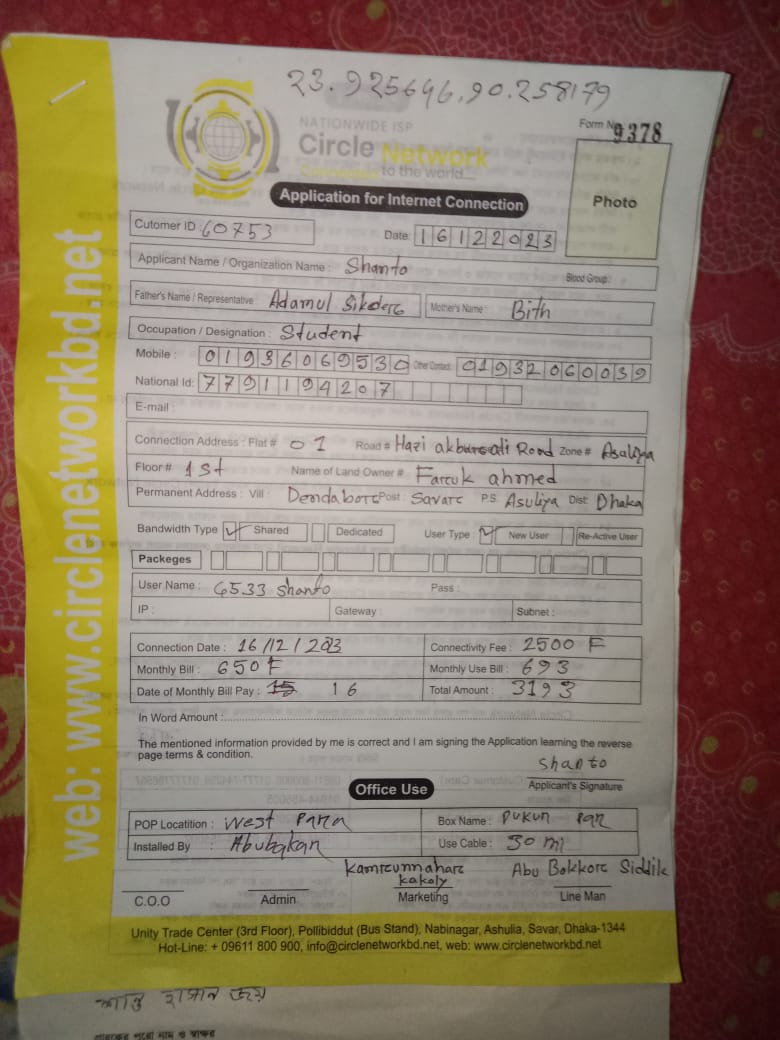 23.925646,90.258179
NATIONWIDE ISP
Form N 9378
Circle Network
to the world...
Photo
Application for Internet Connection
Cutomer ID : 60753 Date: 16122023
Applicant Name / Organization Name : Shanto Blood Group:
Father's Name / Representative Adamul Sikderc Mother's Name : Bith
Occupation / Designation : Student
Mobile : 01936069530 Other Contact: 01932060039
National Id: 7791194207
E-mail :
Connection Address : Flat # 01 Road # Hazi akburcali Road Zone # Asaliya
Floor # 1st Name of Land Owner # Farcuk ahmed
Permanent Address : Vill : Dendaborc Post : Savarc P.S Asuliya Dist: Dhaka
Bandwidth Type Shared Dedicated User Type : New User Re-Active User
Packeges
User Name : 6533 shanto Pass :
IP : Gateway : Subnet :
Connection Date : 16/12/2023 Connectivity Fee : 2500 F
Monthly Bill : 650 F Monthly Use Bill : 693
Date of Monthly Bill Pay : 15 16 Total Amount : 3193
In Word Amount :
The mentioned information provided by me is correct and I am signing the Application learning the reverse
page terms & condition.
shanto
Applicant's Signature
Office Use
POP Locatition : West Para Box Name : Pukur Par
Installed By : Abubakar Use Cable : 30 mi
Kamrcunnaharc Abu Bokkorc Siddik
kakoly
C.O.O Admin Marketing Line Man
Unity Trade Center (3rd Floor), Pollibiddut (Bus Stand), Nabinagar, Ashulia, Savar, Dhaka-1344
Hot-Line: + 09611 800 900, info@circlenetworkbd.net, web: www.circlenetworkbd.net
web: www.circlenetworkbd.net
শান্ত হাসান জয়
গ্রাহকের পুরো নাম ও স্বাক্ষর